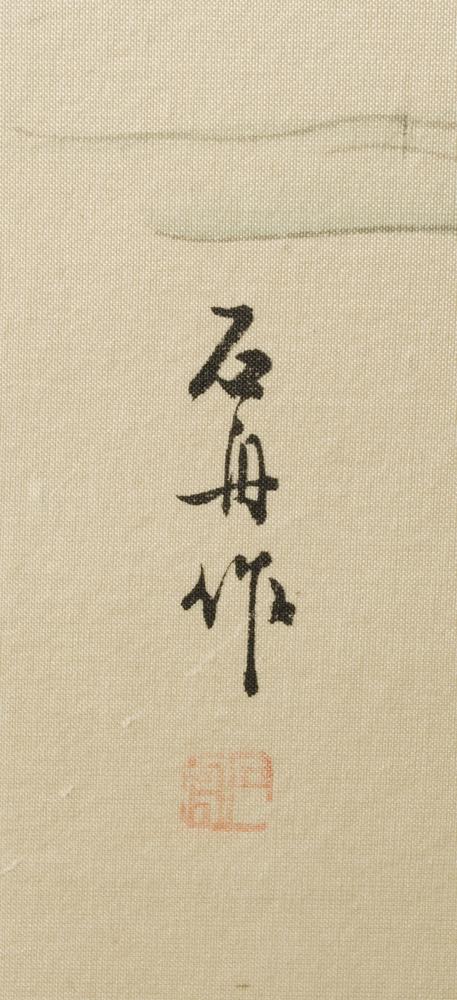 石舟作